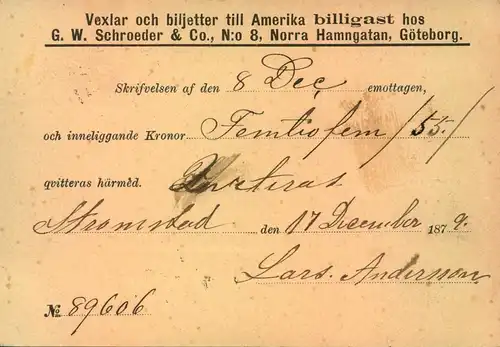 Vexlar och biljetter till Amerika billigast hos
G. W. Schroeder & Co., N:o 8, Norra Hamngatan, Göteborg.
Skrifvelsen af den 8 Dec emottagen,
och inneliggande Kronor Femtiofem /55./
qvitteras härmed. Qvitteras
Strömstad den 17 December 1879.
Lars. Andersson
№ 89606